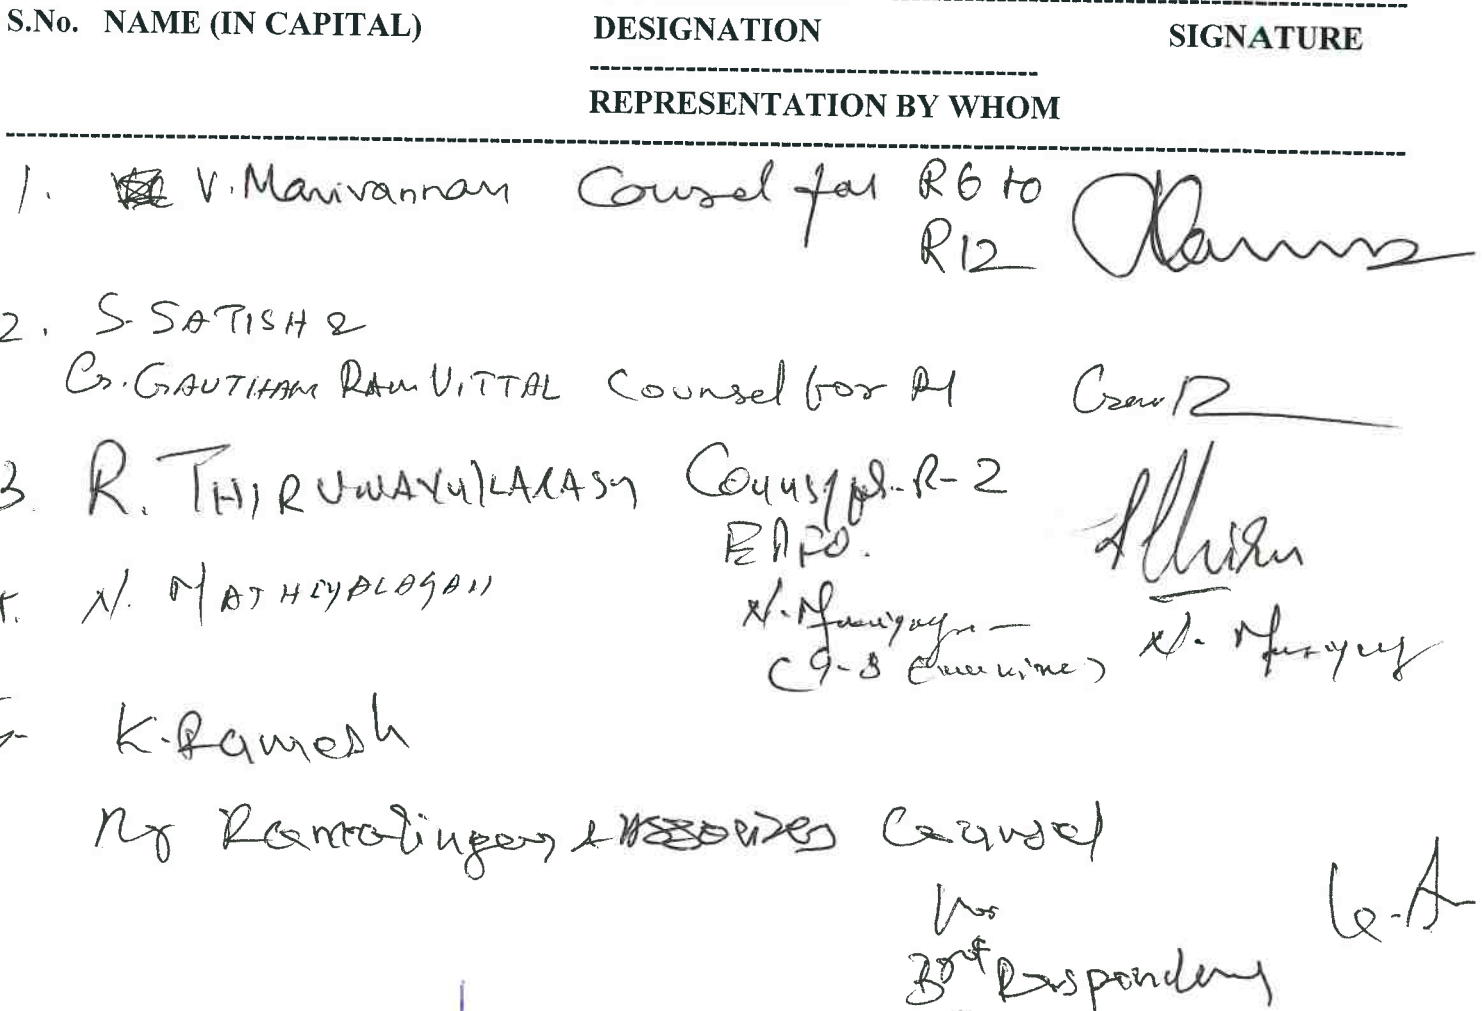 S.No. NAME (IN CAPITAL) DESIGNATION SIGNATURE
REPRESENTATION BY WHOM
1. V. Manivannan Counsel for R6 to
R12
2. S. SATISH &
G. GAUTHAM RAM VITTAL Counsel for R1
3 R. Counsel for R-2
EPFO.
N. MATHIYALAGAN
K. Ramesh
Ramalingam & Associates Counsel
for
3rd Respondent